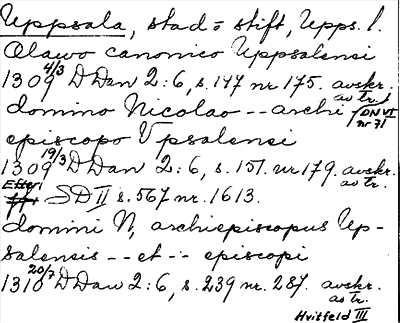 Uppsala, stad o stift, Upps. l.
Olawo canonico Uppsalensi
1309 4/3 DDan 2:6, s. 147 nr 175. avskr. av tr.
domino Nicolao -- archi / DN VI nr 71
episcopo Vpsalensi
1309 19/3 DDan 2:6, s. 151. nr 179. avskr. av tr.
Efter SD II s. 567 nr. 1613.
domini N, archiepiscopus Up-
salensis -- et -- episcopi
1310 20/7 DDan 2:6, s. 239 nr. 287. avskr. av tr.
Hvitfeld III